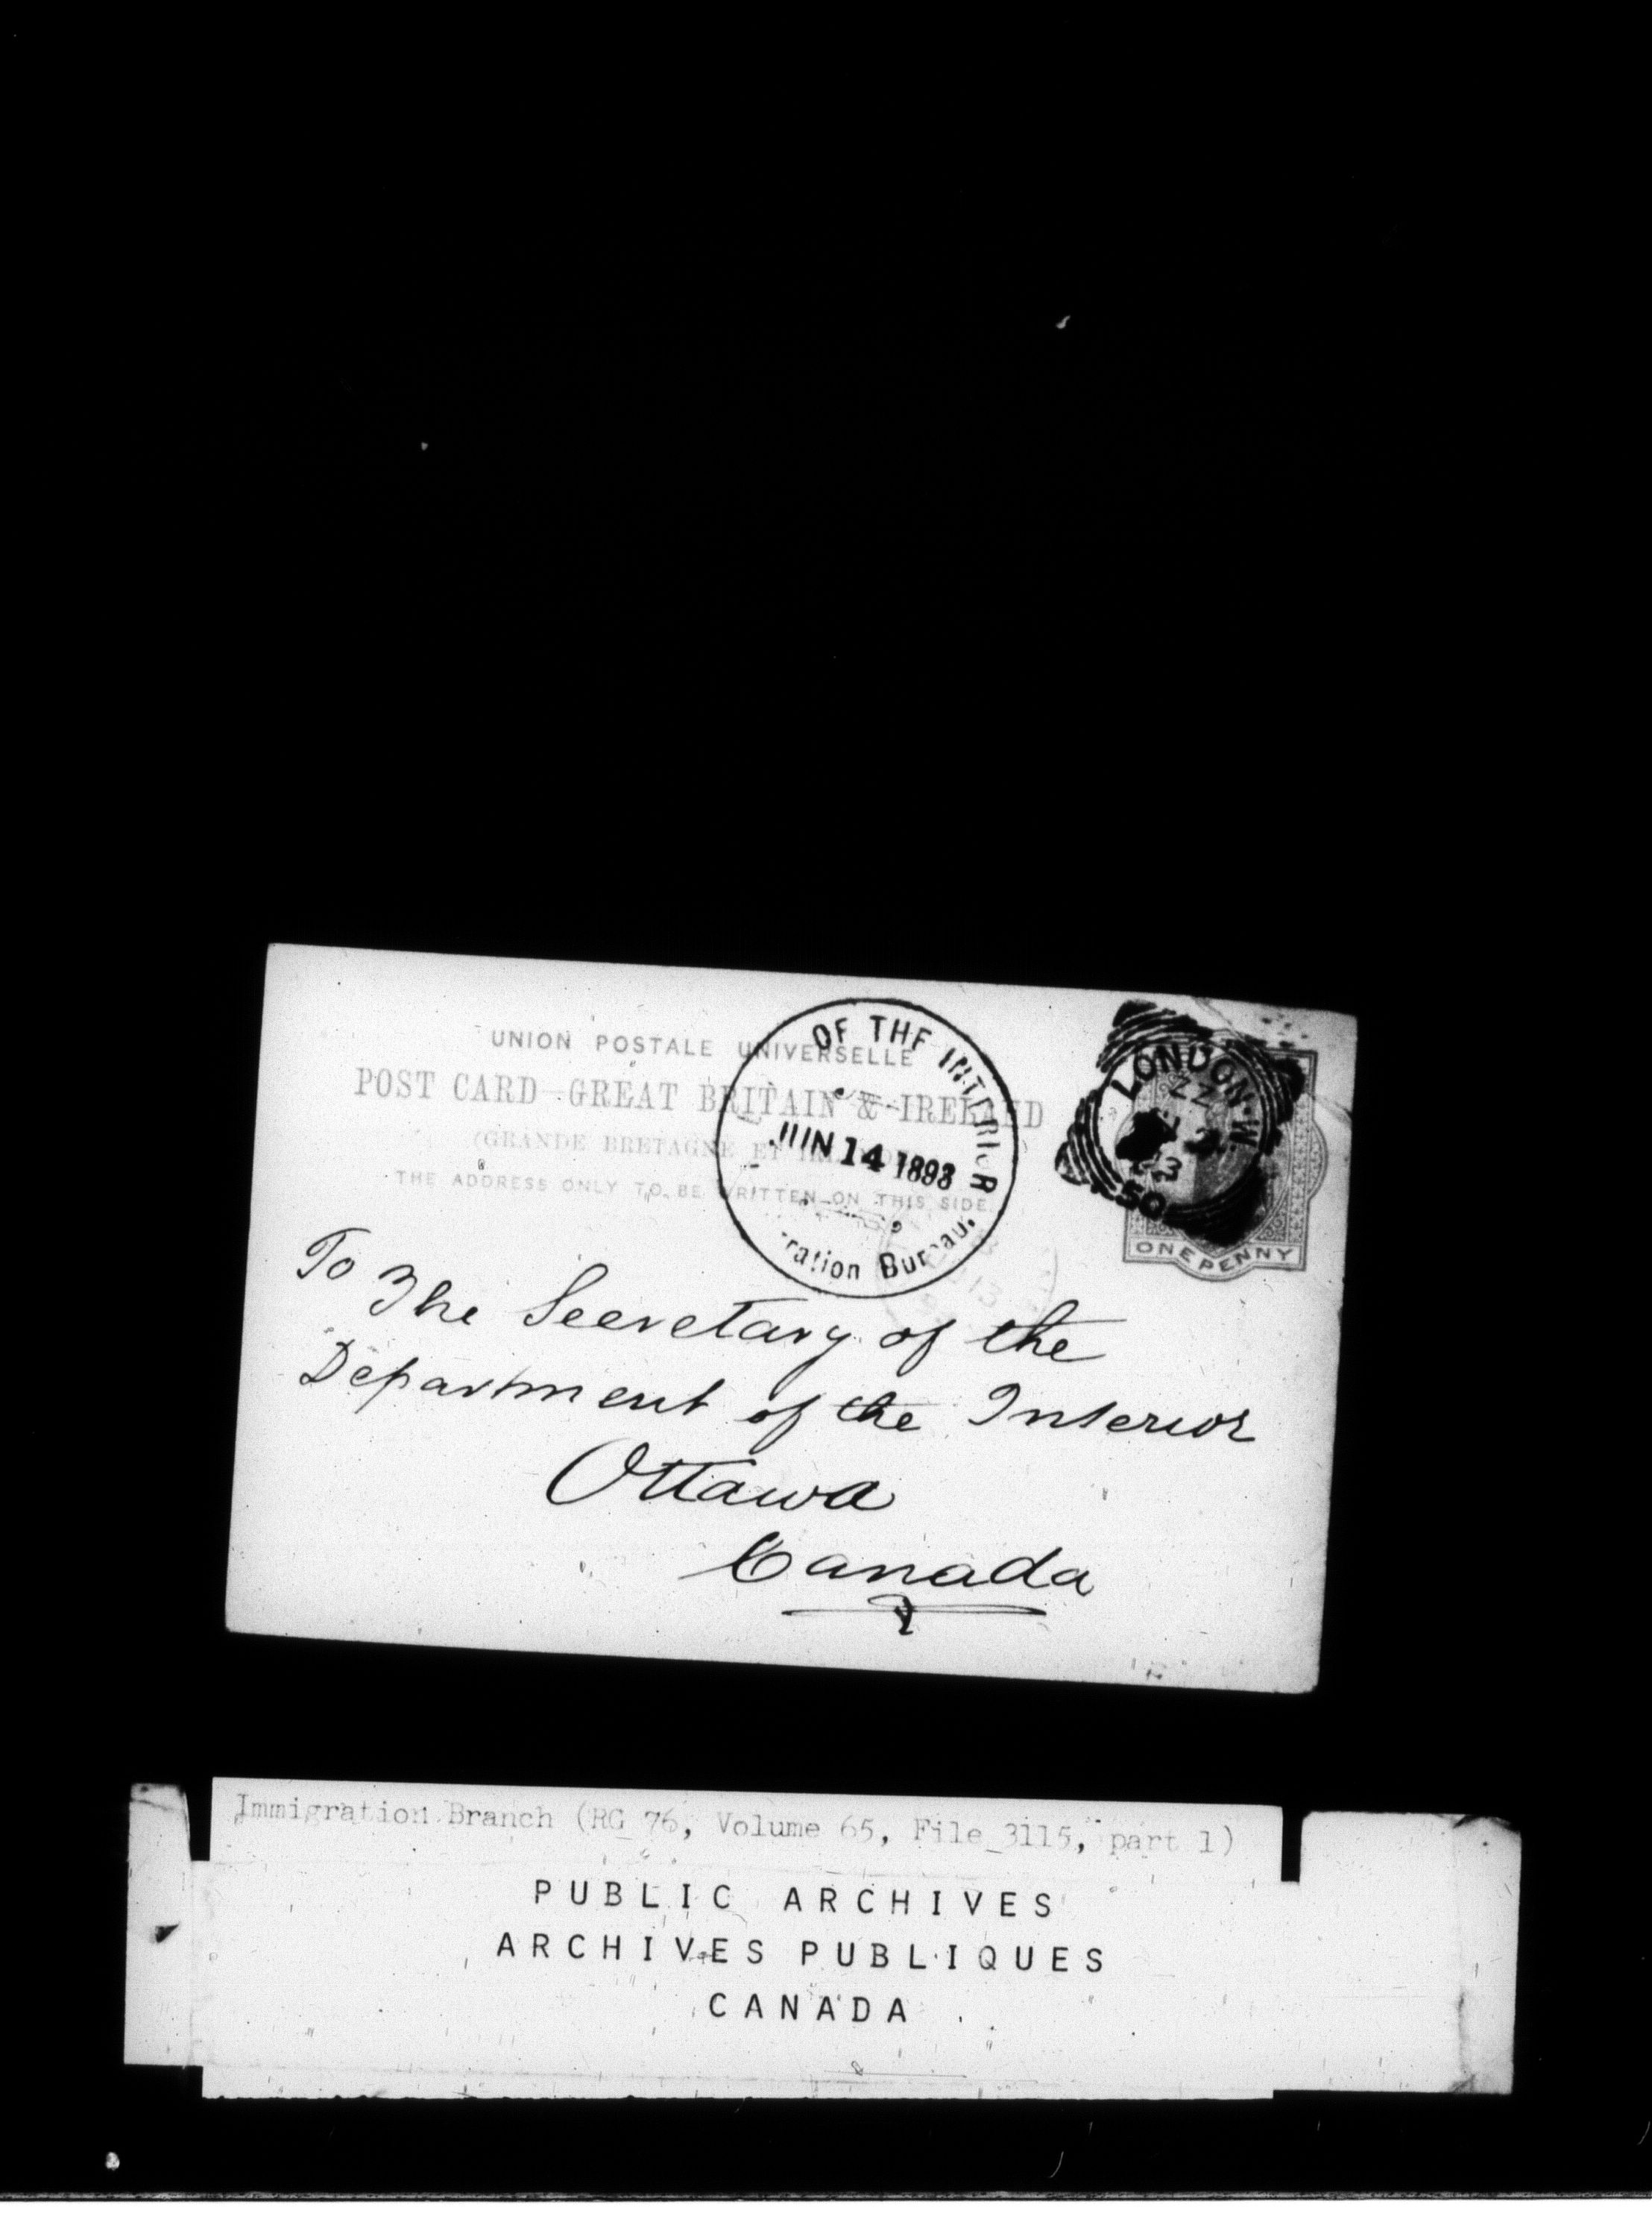 UNION POSTALE UNIVERSELLE
POST CARD - GREAT BRITAIN & IRELAND
(GRANDE BRETAGNE ET
THE ADDRESS ONLY TO BE WRITTEN ON THIS SIDE.
OF THE INTERIOR
JUN 14 1893
ration Bureau.
LONDON·W
ZZ
50
ONE PENNY
To The Secretary of the
Department of the Interior
Ottawa
Canada
Immigration Branch (RG 76, Volume 65, File 3115, part 1)
PUBLIC ARCHIVES
ARCHIVES PUBLIQUES
CANADA